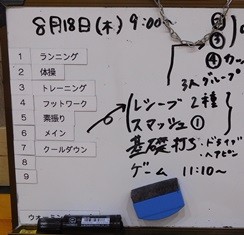 8月18日(木) 9:00~
②
③
④カッ
3人グループ
1 ランニング
2 体操
3 トレーニング
4 フットワーク
5 素振り
6 メイン
7 クールダウン
8
9
レシーブ 2種
スマッシュ①
基礎打ち・ドライブ
・ヘアピン
ゲーム 11:10~